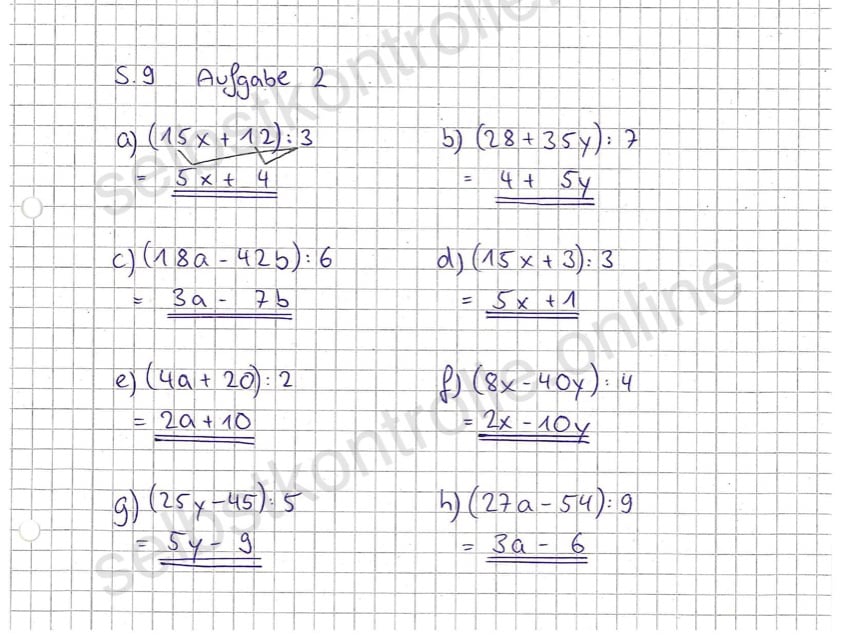 S.9 Aufgabe 2
a) (15x + 12) : 3
= 5x + 4
b) (28 + 35y) : 7
= 4 + 5y
c) (18a - 42b) : 6
= 3a - 7b
d) (15x + 3) : 3
= 5x + 1
e) (4a + 20) : 2
= 2a + 10
f) (8x - 40y) : 4
= 2x - 10y
g) (25y - 45) : 5
= 5y - 9
h) (27a - 54) : 9
= 3a - 6
selbstkontrolle.online
selbstkontrolle.online